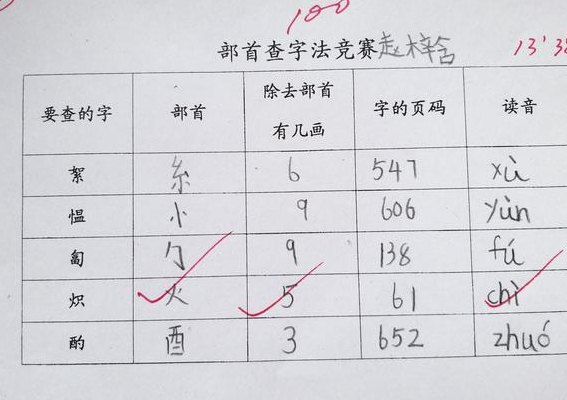 100
部首查字法竞赛 赵梓含 13'38
要查的字 部首 除去部首有几画 字的页码 读音
絮 糸 6 547 xù
愠 忄 9 606 yùn
匐 勹 9 138 fú
炽 火 5 61 chì
酌 酉 3 652 zhuó